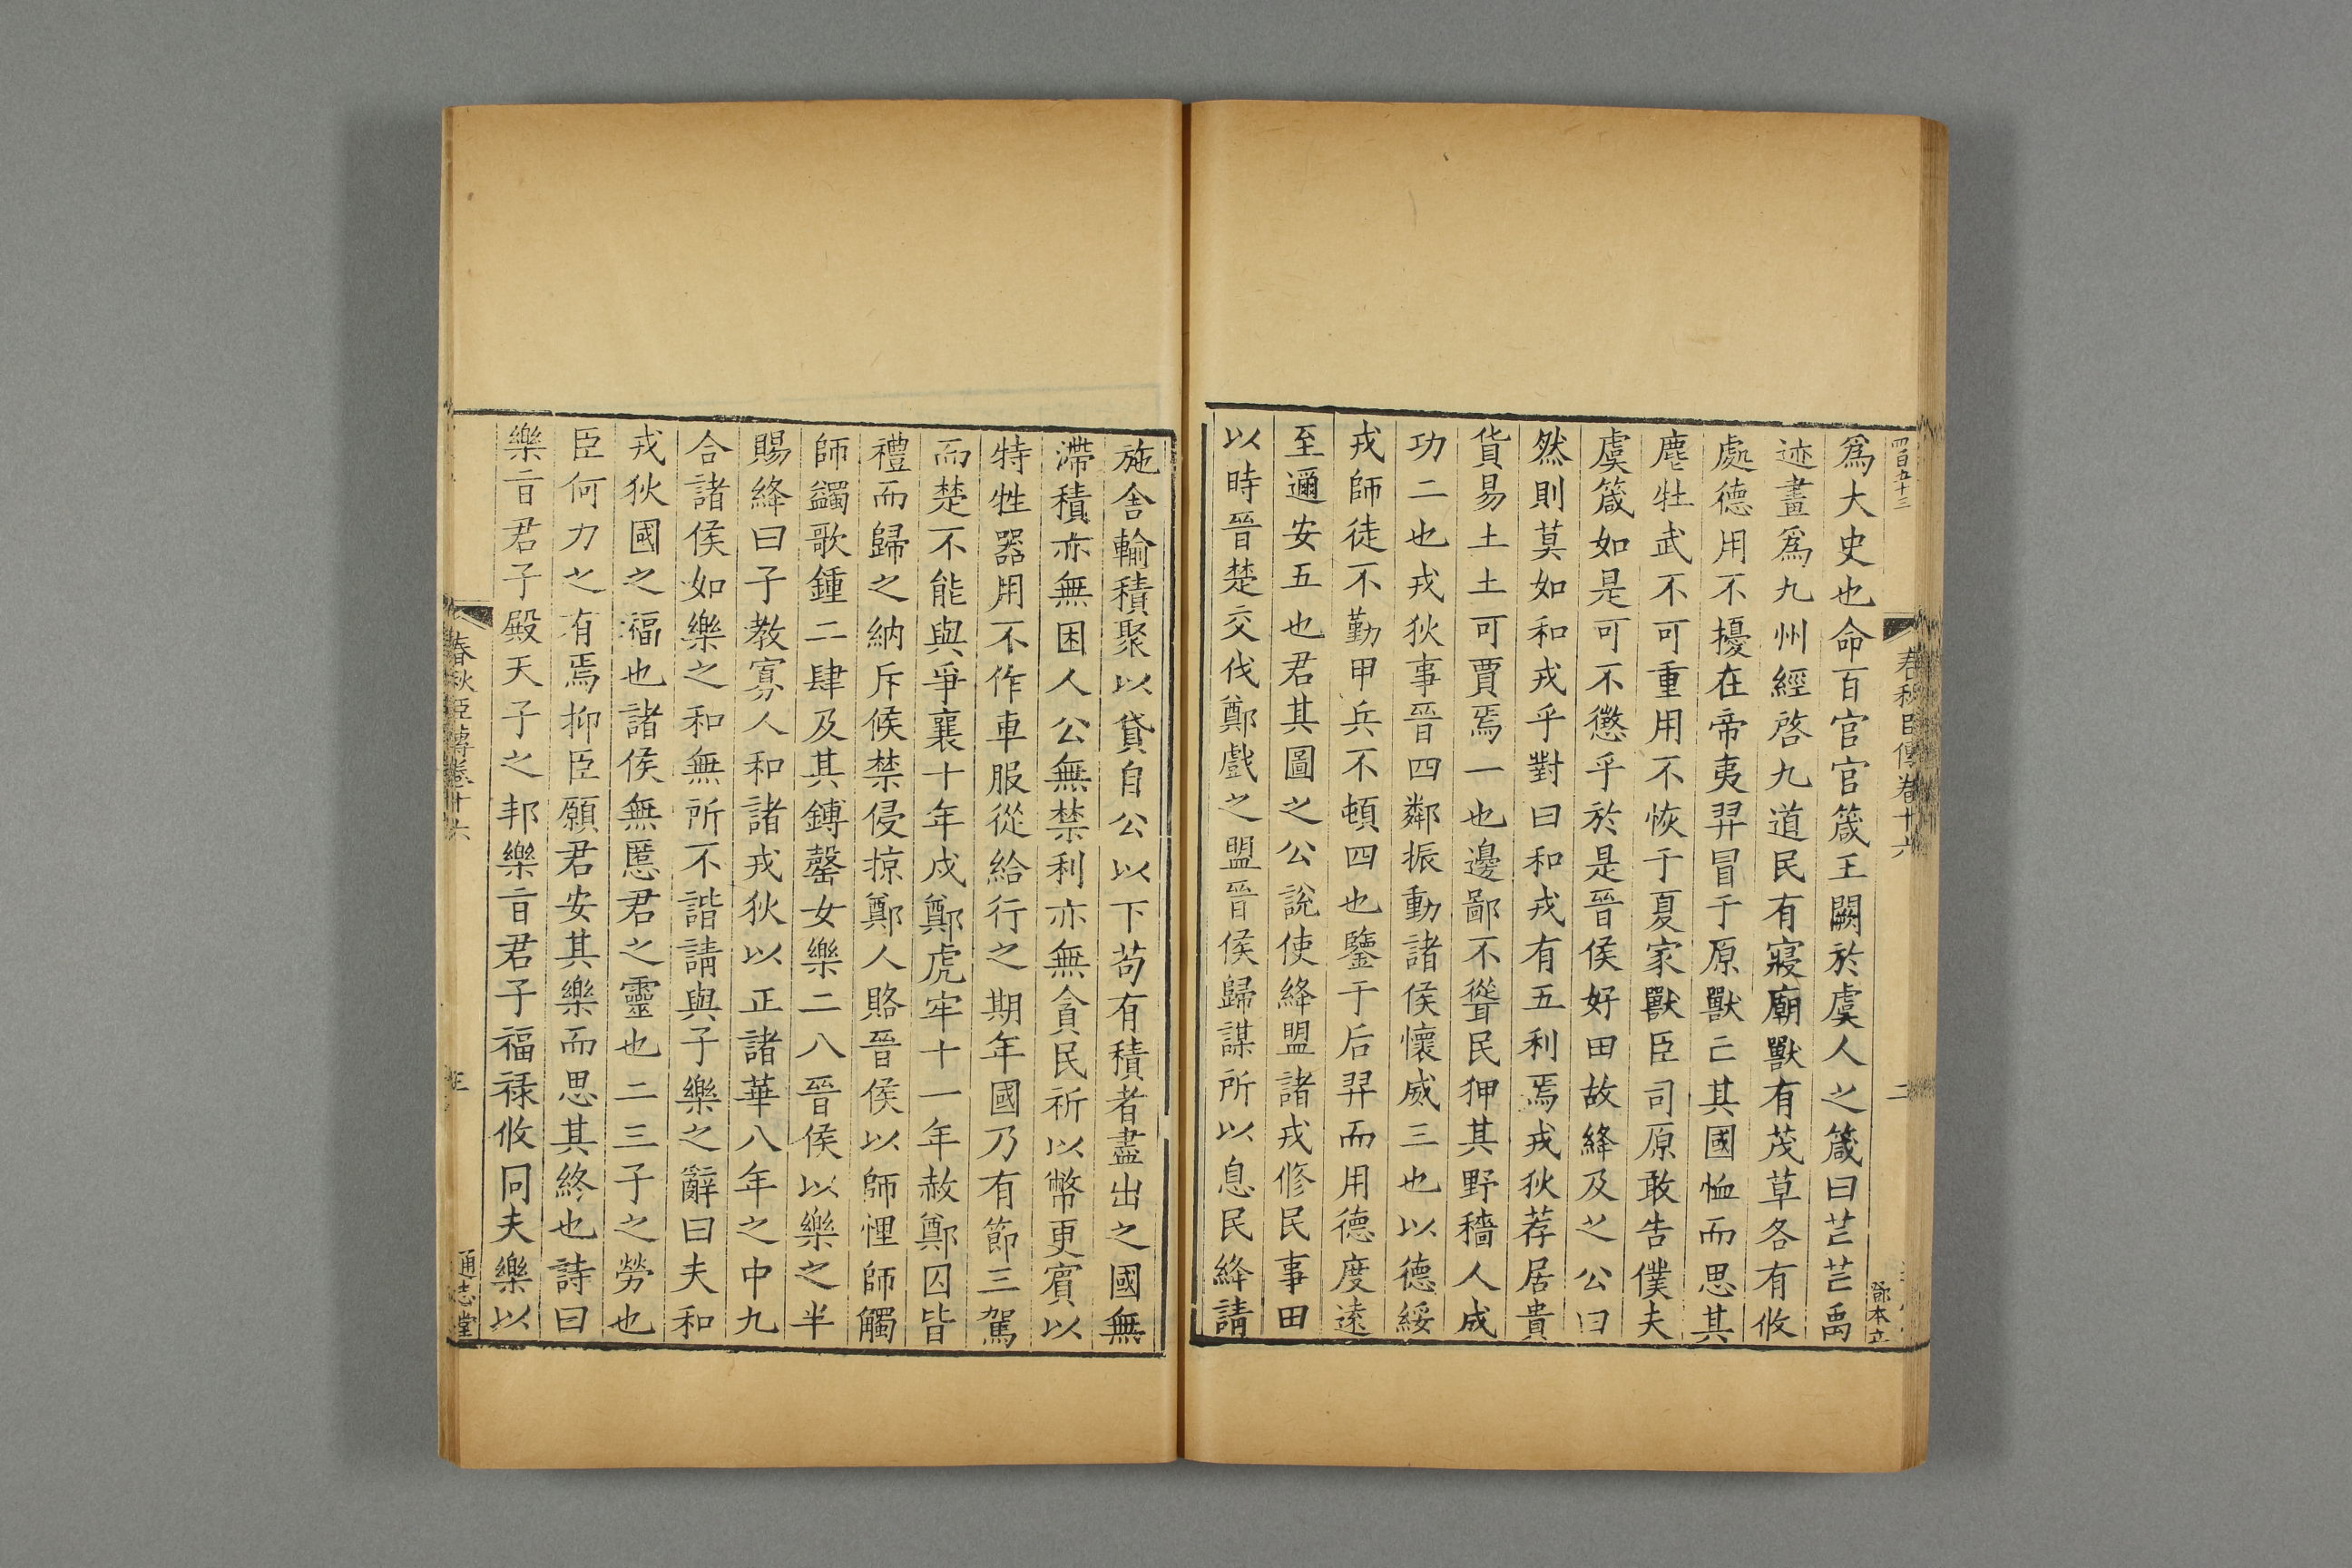 四百五十三
春秋臣傳卷十六
二
爲大史也命百官官箴王闕於虞人之箴曰芒芒禹
迹畫爲九州經啓九道民有寢廟獸有茂草各有攸
處德用不擾在帝夷羿冒于原獸亡其國恤而思其
麀牡武不可重用不恢于夏家獸臣司原敢告僕夫
虞箴如是可不懲乎於是晉侯好田故絳及之公曰
然則莫如和戎乎對曰和戎有五利焉戎狄荐居貴
貨易土土可賈焉一也邊鄙不聳民狎其野穡人成
功二也戎狄事晉四鄰振動諸侯懷威三也以德綏
戎師徒不勤甲兵不頓四也鑒于后羿而用德度遠
至邇安五也君其圖之公說使絳盟諸戎修民事田
以時晉楚交伐鄭戲之盟晉侯歸謀所以息民絳請
施舍輸積聚以貸自公以下苟有積者盡出之國無
滯積亦無困人公無禁利亦無貪民祈以幣更賓以
特牲器用不作車服從給行之期年國乃有節三駕
而楚不能與爭襄十年戍鄭虎牢十一年赦鄭囚皆
禮而歸之納斥候禁侵掠鄭人賂晉侯以師悝師觸
師蠲歌鍾二肆及其鎛罄女樂二八晉侯以樂之半
賜絳曰子教寡人和諸戎狄以正諸華八年之中九
合諸侯如樂之和無所不諧請與子樂之辭曰夫和
戎狄國之福也諸侯無慝君之靈也二三子之勞也
臣何力之有焉抑臣願君安其樂而思其終也詩曰
樂旨君子殿天子之邦樂旨君子福祿攸同夫樂以
春秋臣傳卷十六
三
通志堂